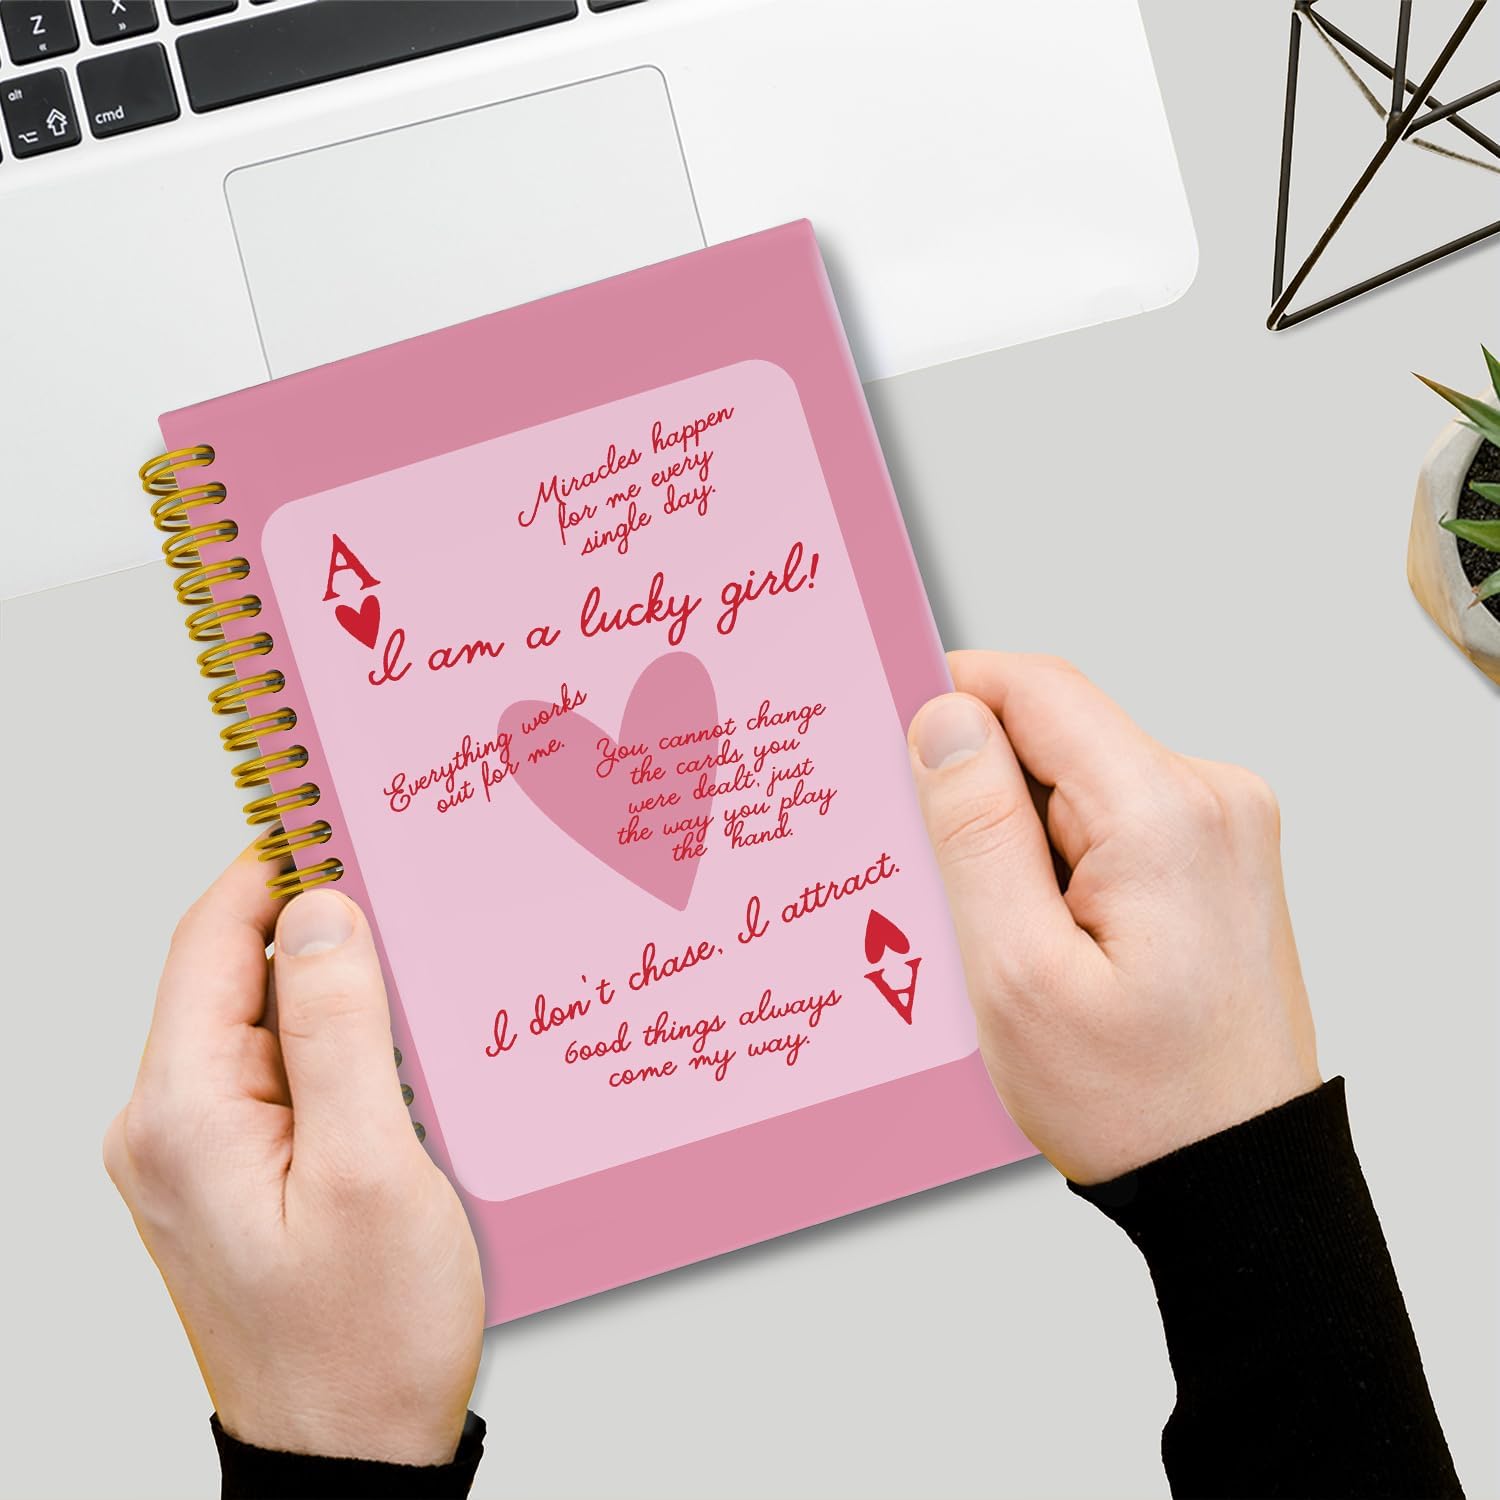 Z
«
X
»
alt
cmd
A
Miracles happen
for me every
single day.
I am a lucky girl!
Everything works
out for me.
You cannot change
the cards you
were dealt, just
the way you play
the hand.
I don't chase, I attract.
Good things always
come my way.
A